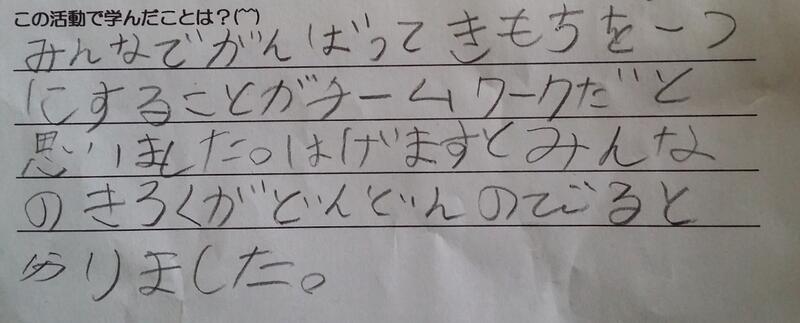 この活動で学んだことは？(^^)
みんなでがんばってきもちを一つ
にすることがチームワークだと
思いました。はげますとみんな
のきろくがどんどんのびると
分りました。